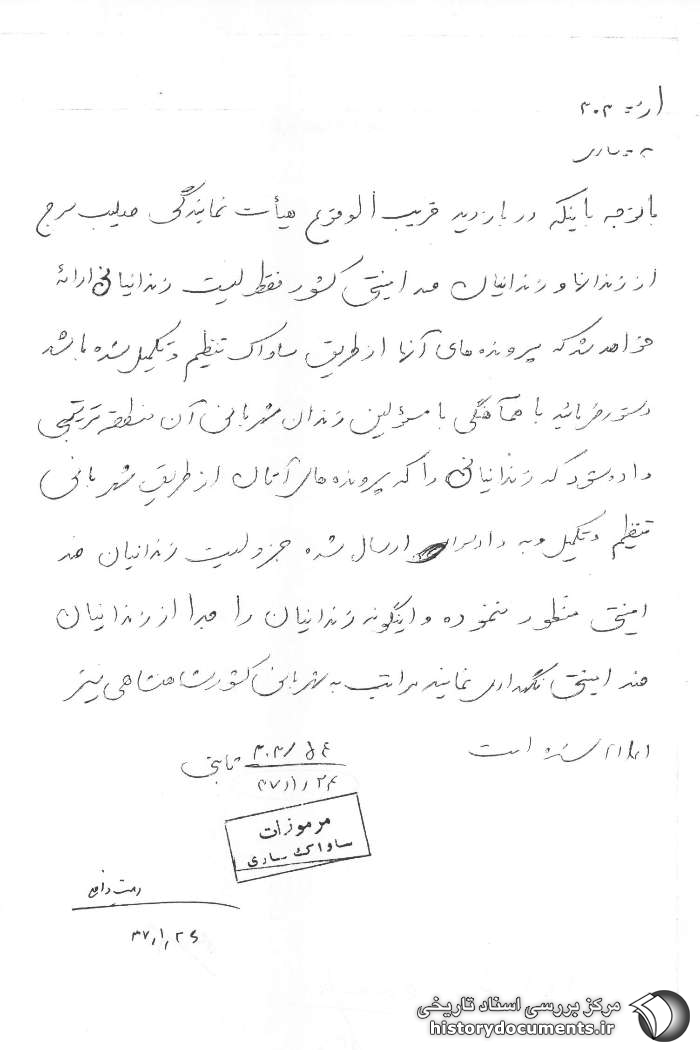 از ۳۰۳
به ساری
با توجه باینکه در بازدید قریب الوقوع هیأت نمایندگی صلیب سرخ
از زندانها و زندانیان ضد امنیتی کشور فقط لیست زندانیانی ارائه
خواهد شد که پرونده های آنها از طریق ساواک تنظیم و تکمیل شده باشد
دستور فرمائید با هماهنگی با مسؤلین زندان شهربانی آن منطقه ترتیبی
داده شود که زندانیانی را که پرونده های آنان از طریق شهربانی
تنظیم و تکمیل و به دادسرا ارسال شده جزو لیست زندانیان ضد
امنیتی منظور ننموده و اینگونه زندانیان را جدا از زندانیان
ضد امنیتی نگهداری نمایند مراتب به شهربانی کشور شاهنشاهی نیز
اعلام شده است
۳۰۳/ ثابتی
۳۷/۱/۲۴
مرموزات
ساواک ساری
۳۷/۱/۲۶
مرکز بررسی اسناد تاریخی
historydocuments.ir